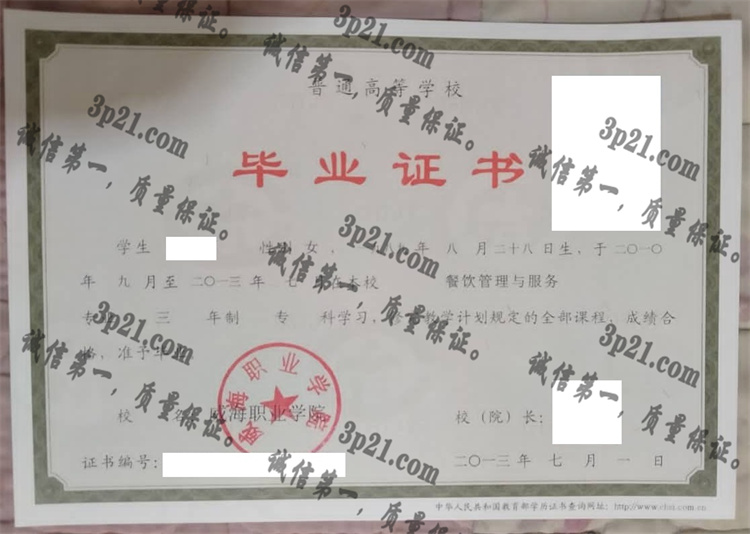 普通高等学校
毕业证书
学生 性别 女， 八九年 八月二十八日生，于二〇一〇
年 九月至 二〇一三年 七月在本校 餐饮管理与服务
专业 三 年制 专 科学习，修完教学计划规定的全部课程，成绩合
格，准予毕业。
威海职业学院
校 名：威海职业学院 校（院）长：
证书编号： 二〇一三年 七月 一日
中华人民共和国教育部学历证书查询网址：http://www.chsi.com.cn
3p21.com
诚信第一，质量保证。
3p21.com
诚信第一，质量保证。
3p21.com
诚信第一，质量保证。
3p21.com
诚信第一，质量保证。
3p21.com
诚信第一，质量保证。
3p21.com
诚信第一，质量保证。
3p21.com
诚信第一，质量保证。
质量保证。